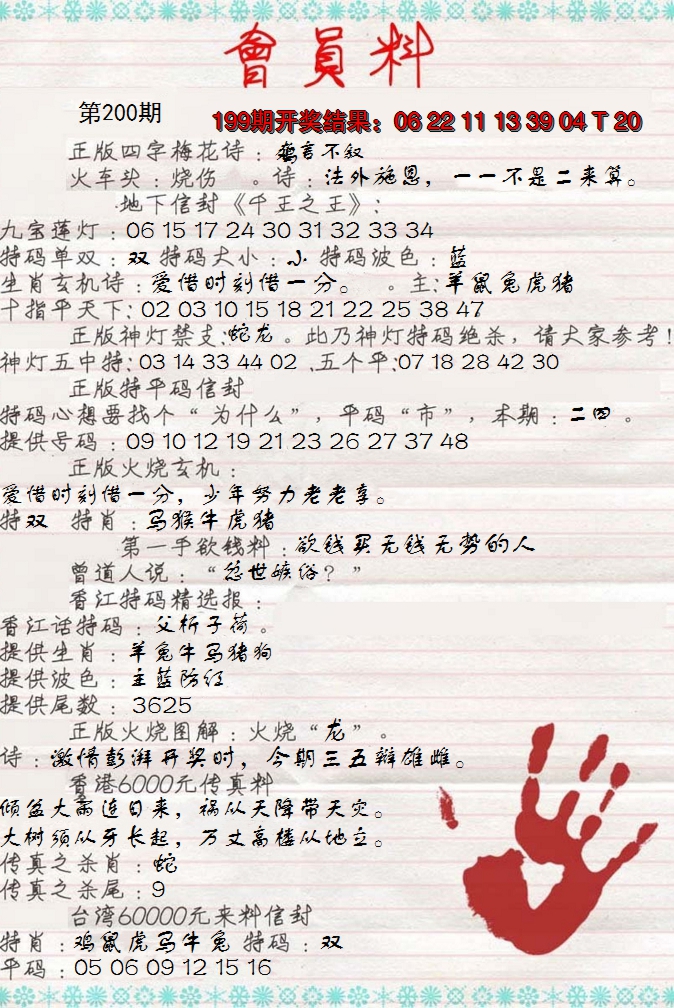 會員料
第200期
199期开奖结果：06 22 11 13 39 04 T 20
正版四字梅花诗：鹅言不叙
火车头：烧伤 。诗：法外施恩，一一不是二来算。
地下信封《千王之王》：
九宝莲灯：06 15 17 24 30 31 32 33 34
特码单双：双 特码大小：小 特码波色：蓝
生肖玄机诗：爱借时刻借一分。 。主：羊鼠兔虎猪
十指平天下：02 03 10 15 18 21 22 25 38 47
正版神灯禁支：蛇龙。此乃神灯特码绝杀，请大家参考！
神灯五中特：03 14 33 44 02 .五个平：07 18 28 42 30
正版特平码信封
特码心想要找个“为什么”，平码“市”，本期：二四。
提供号码：09 10 12 19 21 23 26 27 37 48
正版火烧玄机：
爱借时刻借一分，少年努力老老享。
特双 特肖：马猴牛虎猪
第一手欲钱料：欲钱买无钱无势的人
曾道人说：“忿世嫉俗？”
香江特码精选报：
香江话特码：父析子荷。
提供生肖：羊兔牛马猪狗
提供波色：主蓝防红
提供尾数：3625
正版火烧图解：火烧“龙”。
诗：激情彭湃开奖时，今期三五辩雄雌。
香港6000元传真料
倾盆大雨连日来，祸从天降带天灾。
大树须从牙长起，万丈高楼从地立。
传真之杀肖：蛇
传真之杀尾：9
台湾60000元来料信封
特肖：鸡鼠虎马牛兔 特码：双
平码：05 06 09 12 15 16